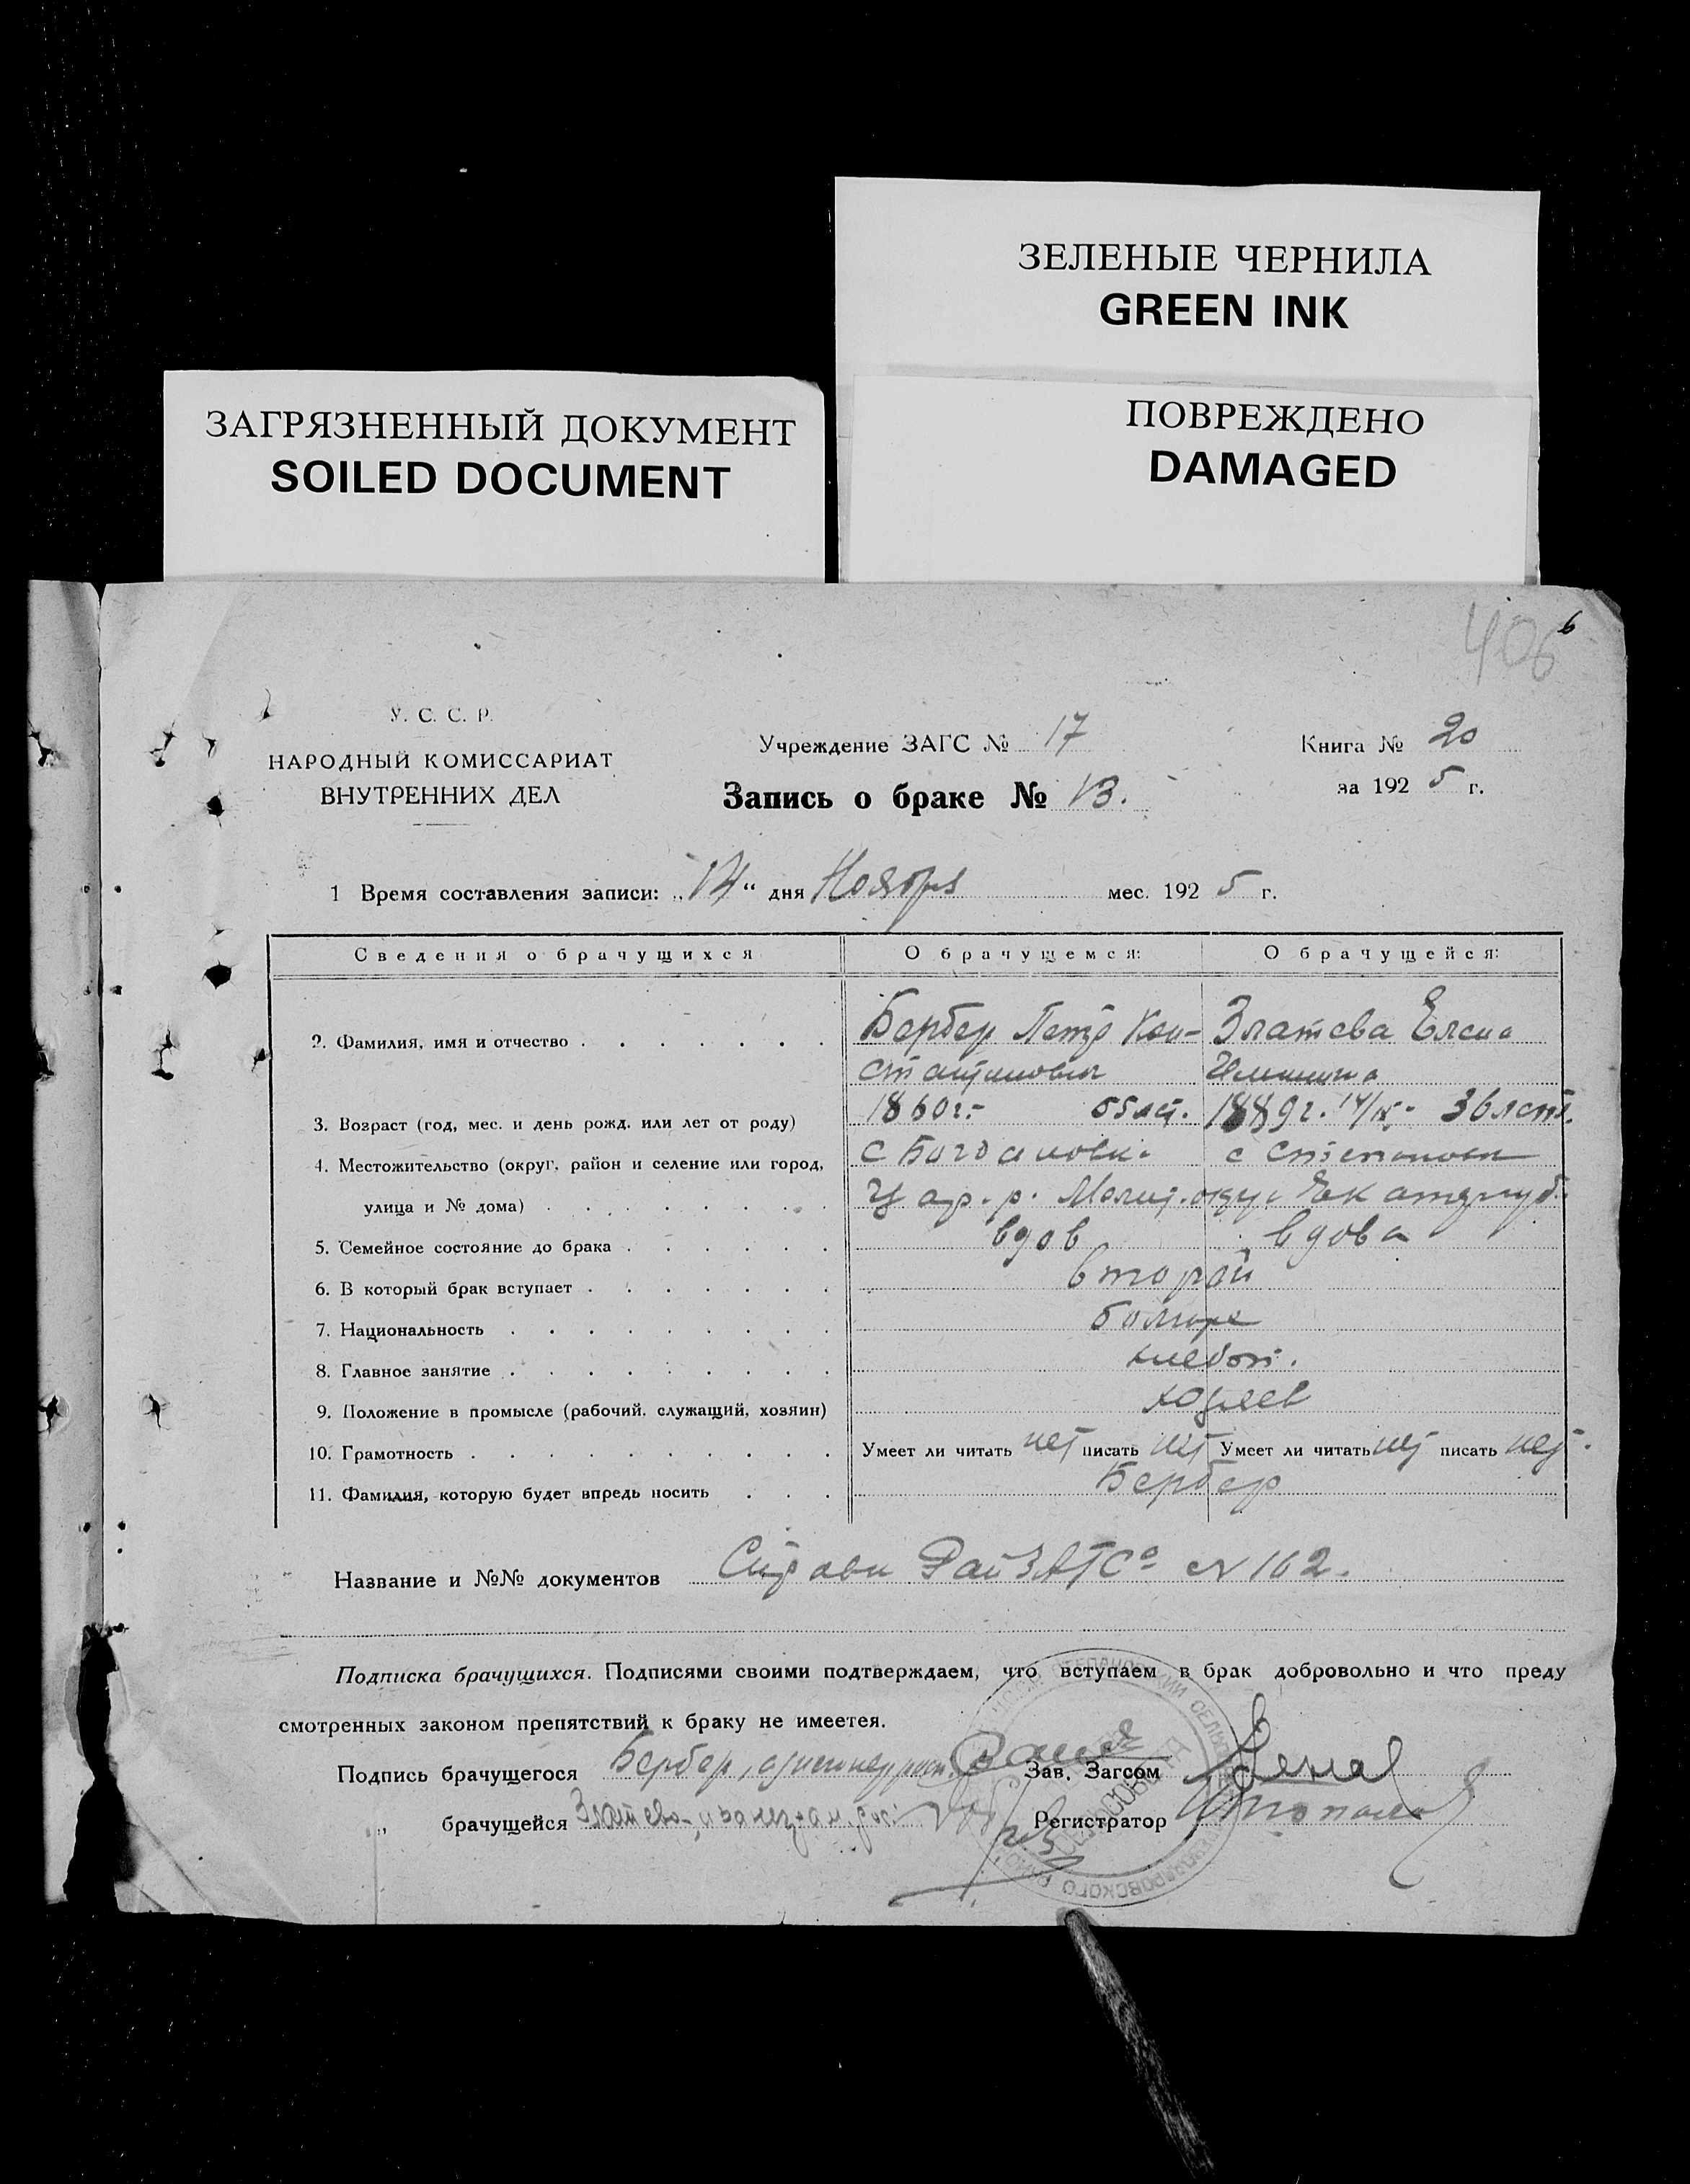 ЗЕЛЕНЫЕ ЧЕРНИЛА
GREEN INK
ЗАГРЯЗНЕННЫЙ ДОКУМЕНТ
SOILED DOCUMENT
ПОВРЕЖДЕНО
DAMAGED
406 6
У. С. С. Р.
НАРОДНЫЙ КОМИССАРИАТ
ВНУТРЕННИХ ДЕЛ
Учреждение ЗАГС № 17
Запись о браке № 13.
Книга № 20
за 1925 г.
1 Время составления записи: „14" дня Ноября мес. 1925 г.
Сведения о брачущихся О брачущемся: О брачущейся:
2. Фамилия, имя и отчество Бербер Петр Кон- Златева Елена
стантинович
3. Возраст (год, мес. и день рожд. или лет от роду) 1860г. 55 лет. 1889г. 36 лет.
4. Местожительство (округ, район и селение или город, с Богдановка с Степановка
улица и № дома) Цар. р. Мелит. окр. Екатер. губ.
5. Семейное состояние до брака вдов вдова
6. В который брак вступает второй
7. Национальность болгаре
8. Главное занятие хлебоп.
9. Положение в промысле (рабочий, служащий, хозяин) хозяев
10. Грамотность Умеет ли читать нет писать нет Умеет ли читать нет писать нет.
11. Фамилия, которую будет впредь носить Бербер
Название и №№ документов Справки РайЗАГСа № 162.
Подписка брачущихся. Подписями своими подтверждаем, что вступаем в брак добровольно и что преду
смотренных законом препятствий к браку не имеется.
Подпись брачущегося Бербер, Зав. Загсом
„ брачущейся Златева Регистратор